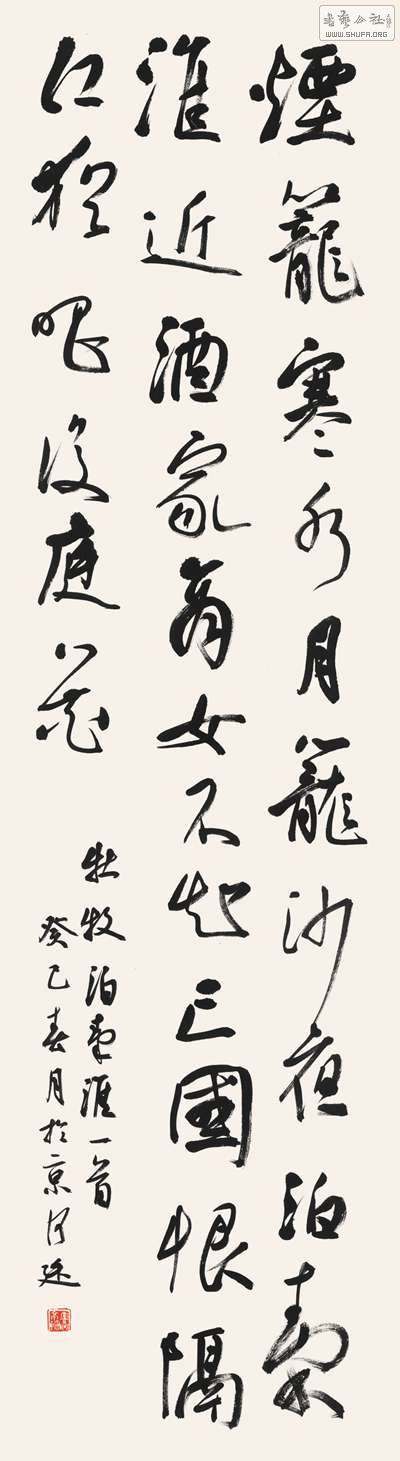 煙籠寒水月籠沙夜泊秦
淮近酒家商女不知亡國恨隔
江猶唱後庭花
杜牧泊秦淮一首
癸巳春月於京
WWW.SHUFA.ORG